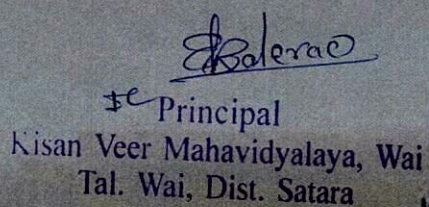 Principal
Kisan Veer Mahavidyalaya, Wai
Tal. Wai, Dist. Satara